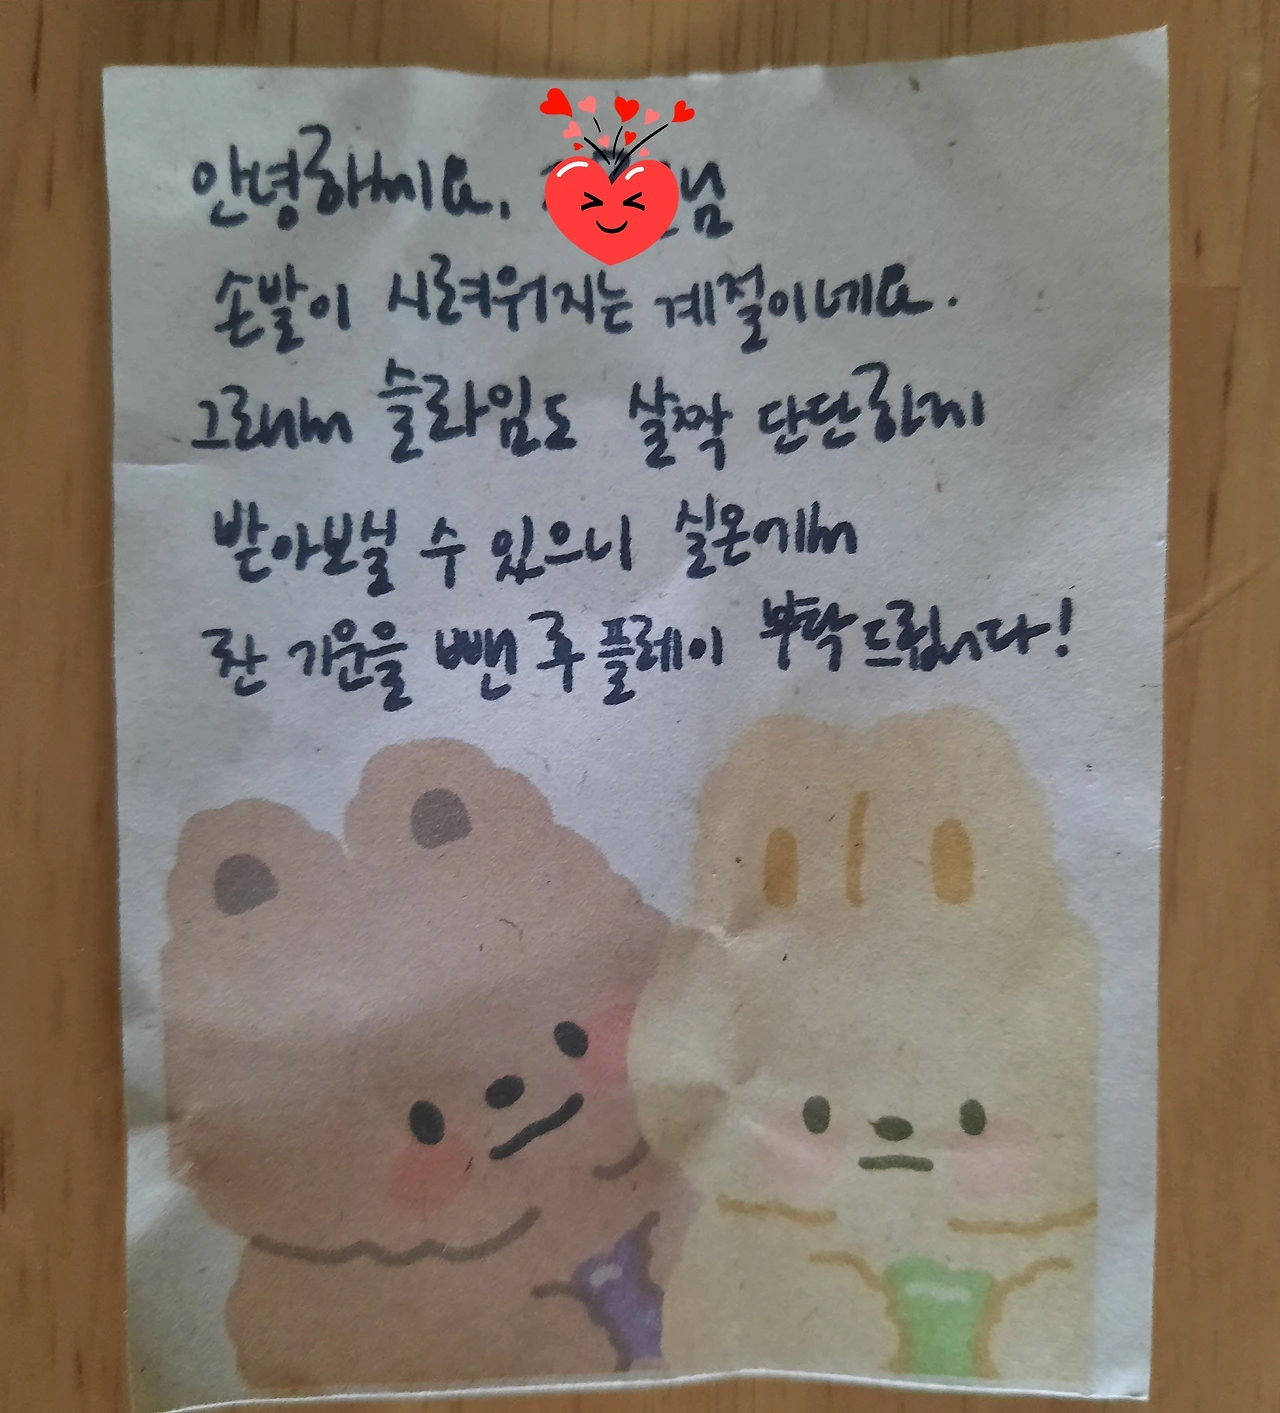 안녕하세요. 님
손발이 시려워지는 계절이네요.
그래서 슬라임도 살짝 단단하게
받아보실 수 있으니 실온에서
찬 기운을 뺀 후 플레이 부탁드립니다!